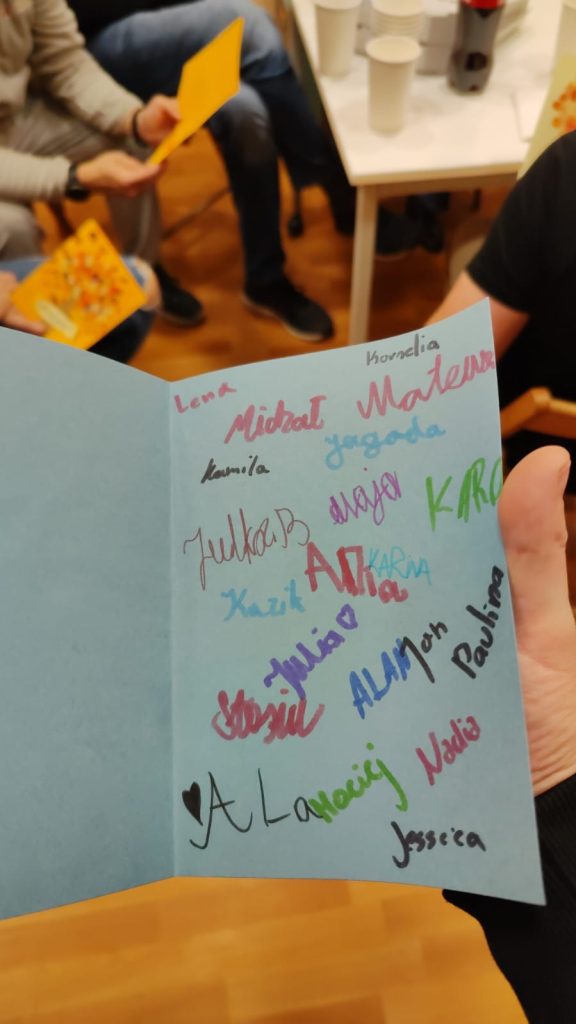 Kornelia
Lena
Michał Mateusz
Jagoda
Kamila
Maja KARO
Julka B
Ania KARiNA
Kazik
Julia
Paulina
ALAN Jan
Stasiu
Nadia
ALa Maciej
Jessica